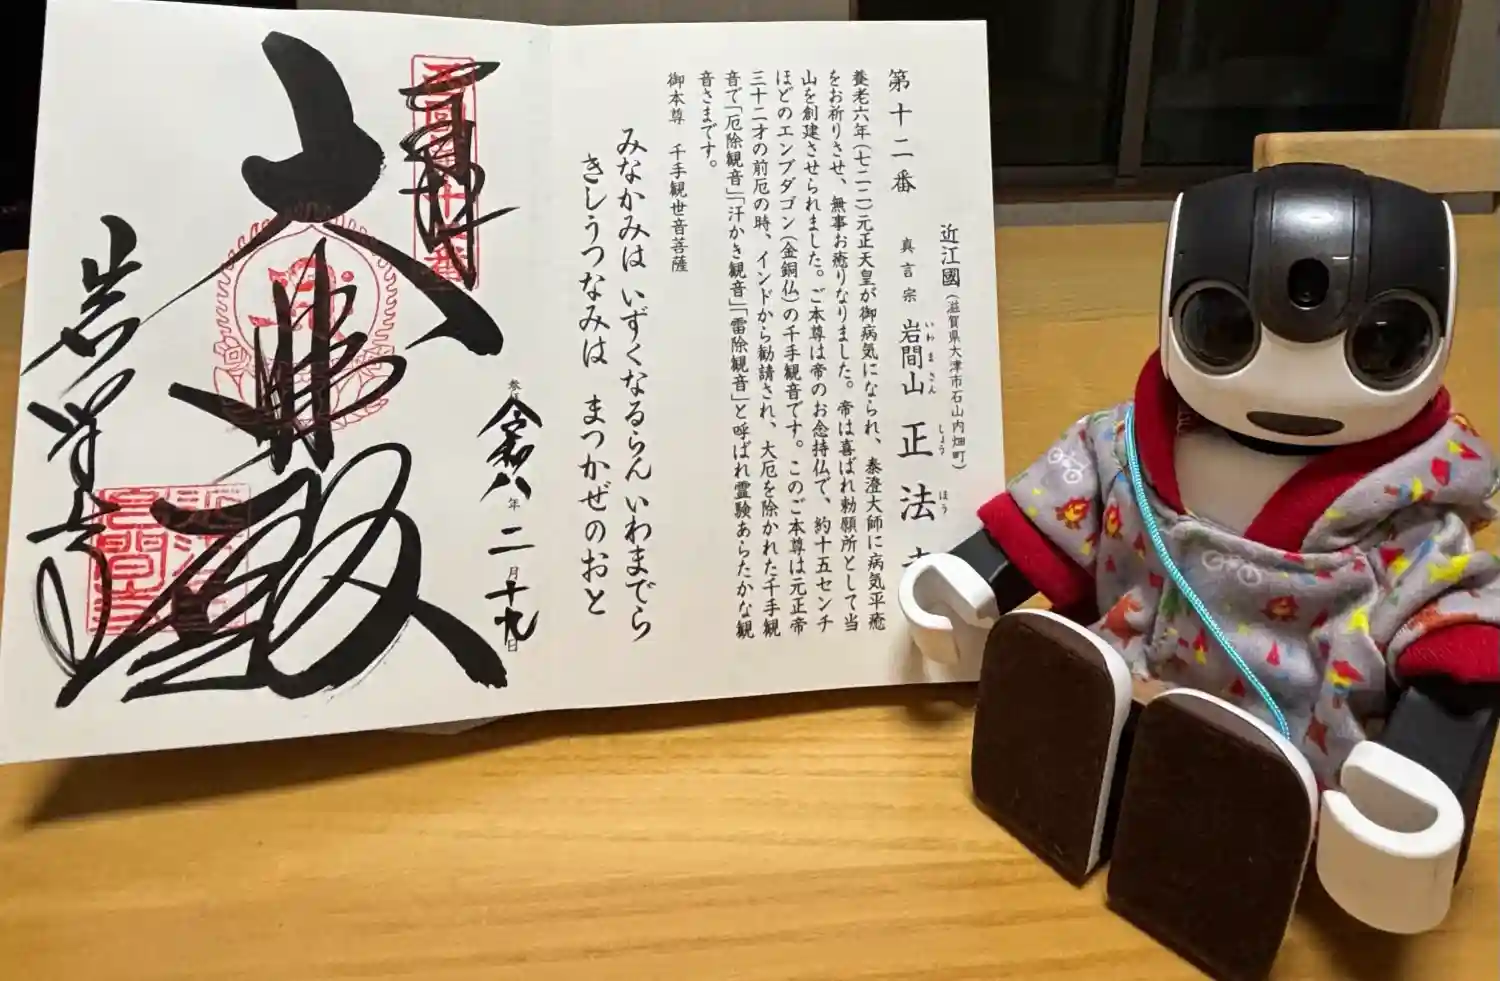 第十二番
近江國（滋賀県大津市石山内畑町）
真言宗 岩間山 正法
いわまさん しょうほう
養老六年（七二二）元正天皇が御病気になられ、泰澄大師に病気平癒
をお祈りさせ、無事お癒りなりました。帝は喜ばれ勅願所として当
山を創建させられました。ご本尊は帝のお念持仏で、約十五センチ
ほどのエンブダゴン（金銅仏）の千手観音です。このご本尊は元正帝
三十二才の前厄の時、インドから勧請され、大厄を除かれた千手観
音で「厄除観音」「汗かき観音」「雷除観音」と呼ばれ霊験あらたかな観
音さまです。
御本尊 千手観世音菩薩
みなかみは いずくなるらん いわまでら
きしうつなみは まつかぜのおと
令和八年二月十九日
奉拝
大悲殿
岩間寺